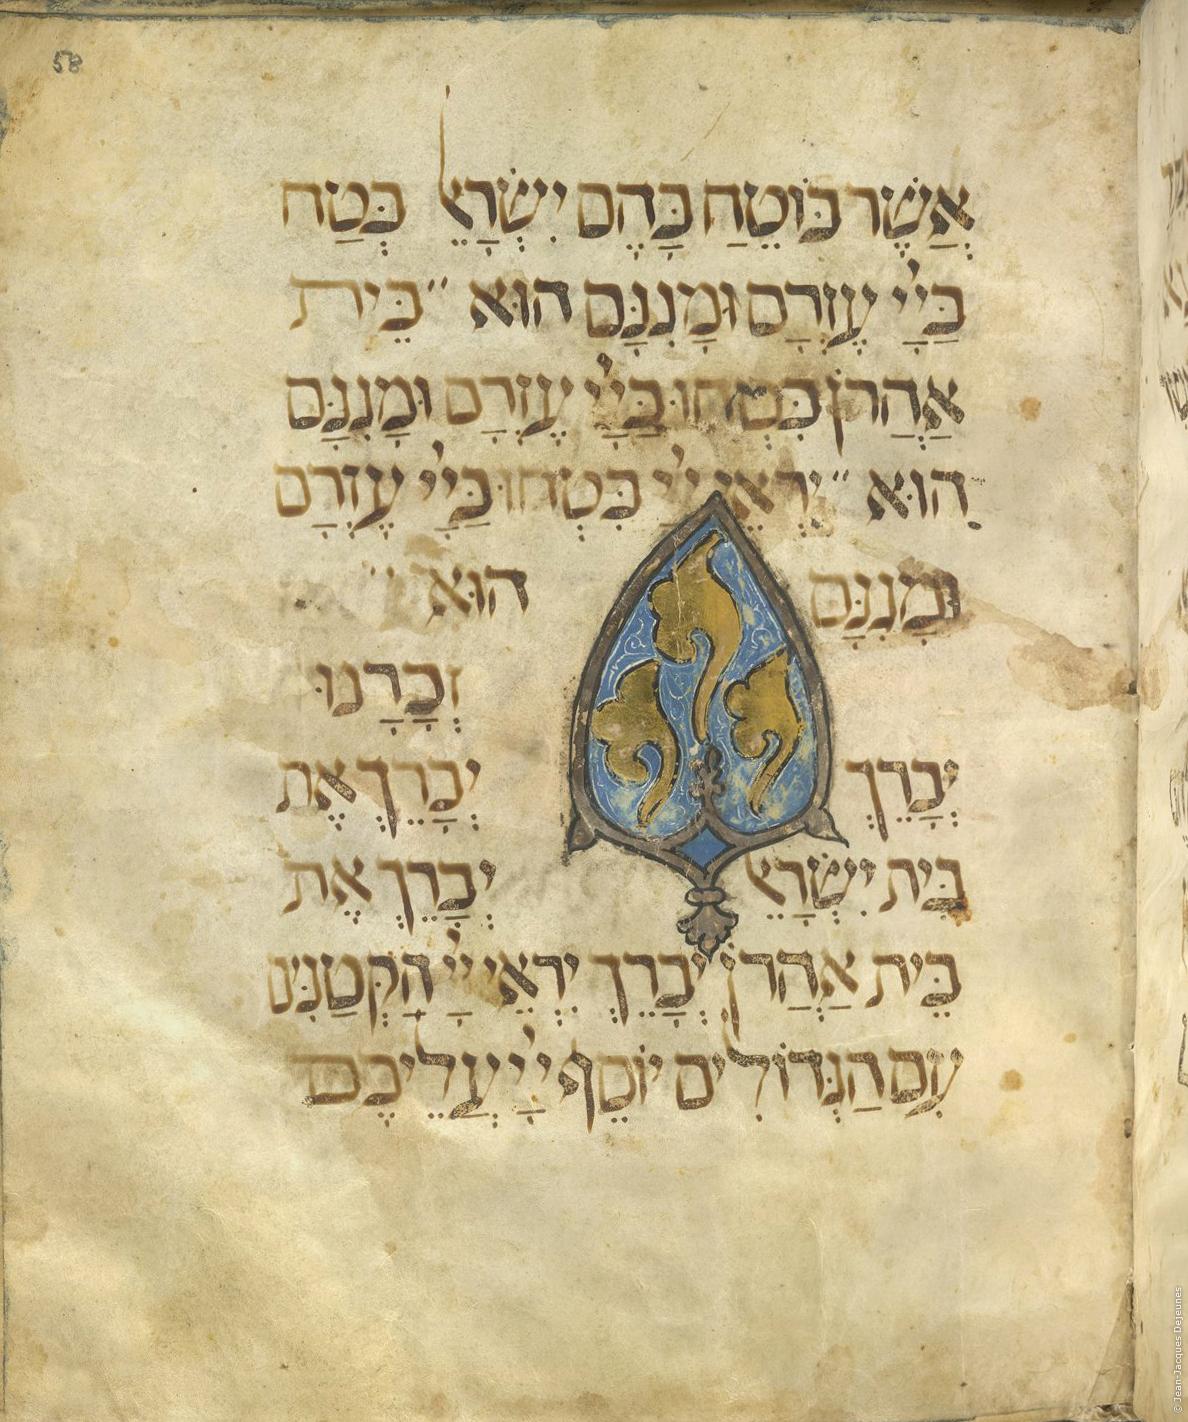 58
אֲשֶׁר בּוֹטֵחַ בָּהֶם יִשְׂרָאֵל בְּטַח
בַּיְיָ עֶזְרָם וּמָגִנָּם הוּא " בֵּית
אַהֲרֹן בִּטְחוּ בַּיְיָ עֶזְרָם וּמָגִנָּם
הוּא " יִרְאֵי יְיָ בִּטְחוּ בַּיְיָ עֶזְרָם
וּמָגִנָּם הוּא "
זְכָרָנוּ
יְבָרֵךְ יְבָרֵךְ אֶת
בֵּית יִשְׂרָאֵל יְבָרֵךְ אֶת
בֵּית אַהֲרֹן יְבָרֵךְ יִרְאֵי יְיָ הַקְּטַנִּים
עִם הַגְּדוֹלִים יוֹסֵף יְיָ עֲלֵיכֶם
© Jean-Jacques Dejeunes